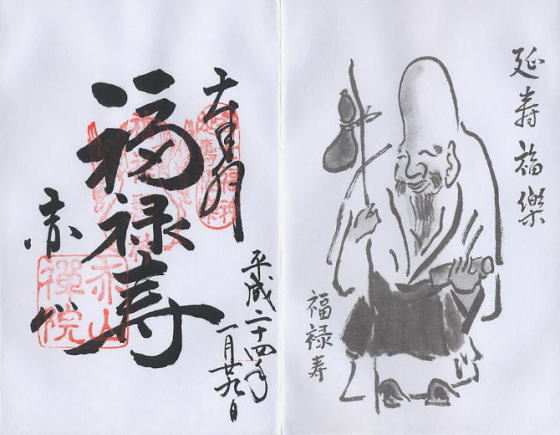 延寿福樂
福禄寿
福禄寿
赤山
赤山禪院
平成二十四年
一月廿九日